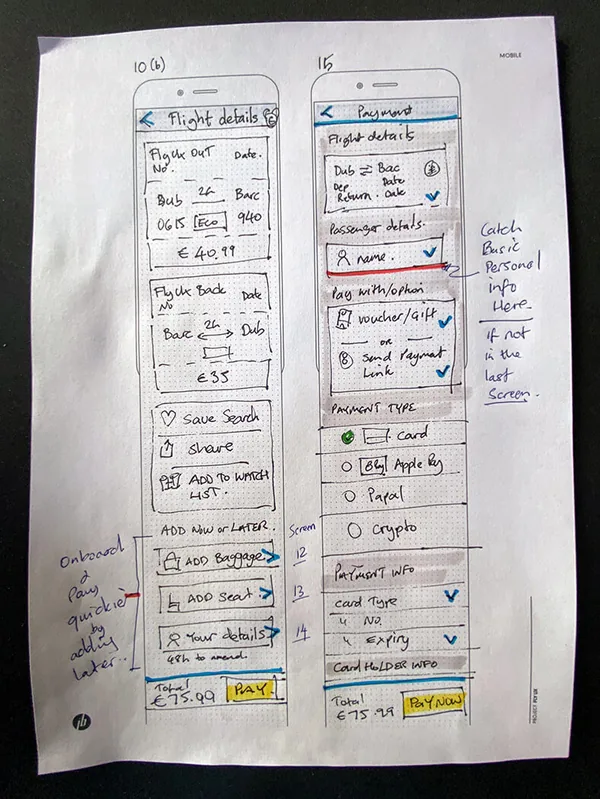 MOBILE
10 (b)
Flight details
Flight OUT Date.
No.
Dub 2h Barc
0615 Eco 940
€ 40.99
Flight Back Date
No
Barc 2h Dub
€35
Save Search
share
ADD TO WATCH
LIST.
ADD NOW or LATER.
ADD Baggage
ADD Seat.
Your details
48h to amend.
Total
€75.99 PAY
Onboard
&
Pay
quicker
by
adding
later..
Screen
12
13
14
15
Payment
Flight details
Dub ⇌ Bac
Dep Date
Return. Date
Passenger details.
name.
Pay with/option
voucher/Gift
or
Send Paymat
Link
PAYMENT TYPE
Card
Apple Pay
Papal
Crypto
PAYMENT INFO
Card Type
" No.
" Expiry
Card HOLDER INFO
Total
€75.99 PAY NOW
Catch
Basic
Personal
info
Here.
if not
in the
last
Screen.